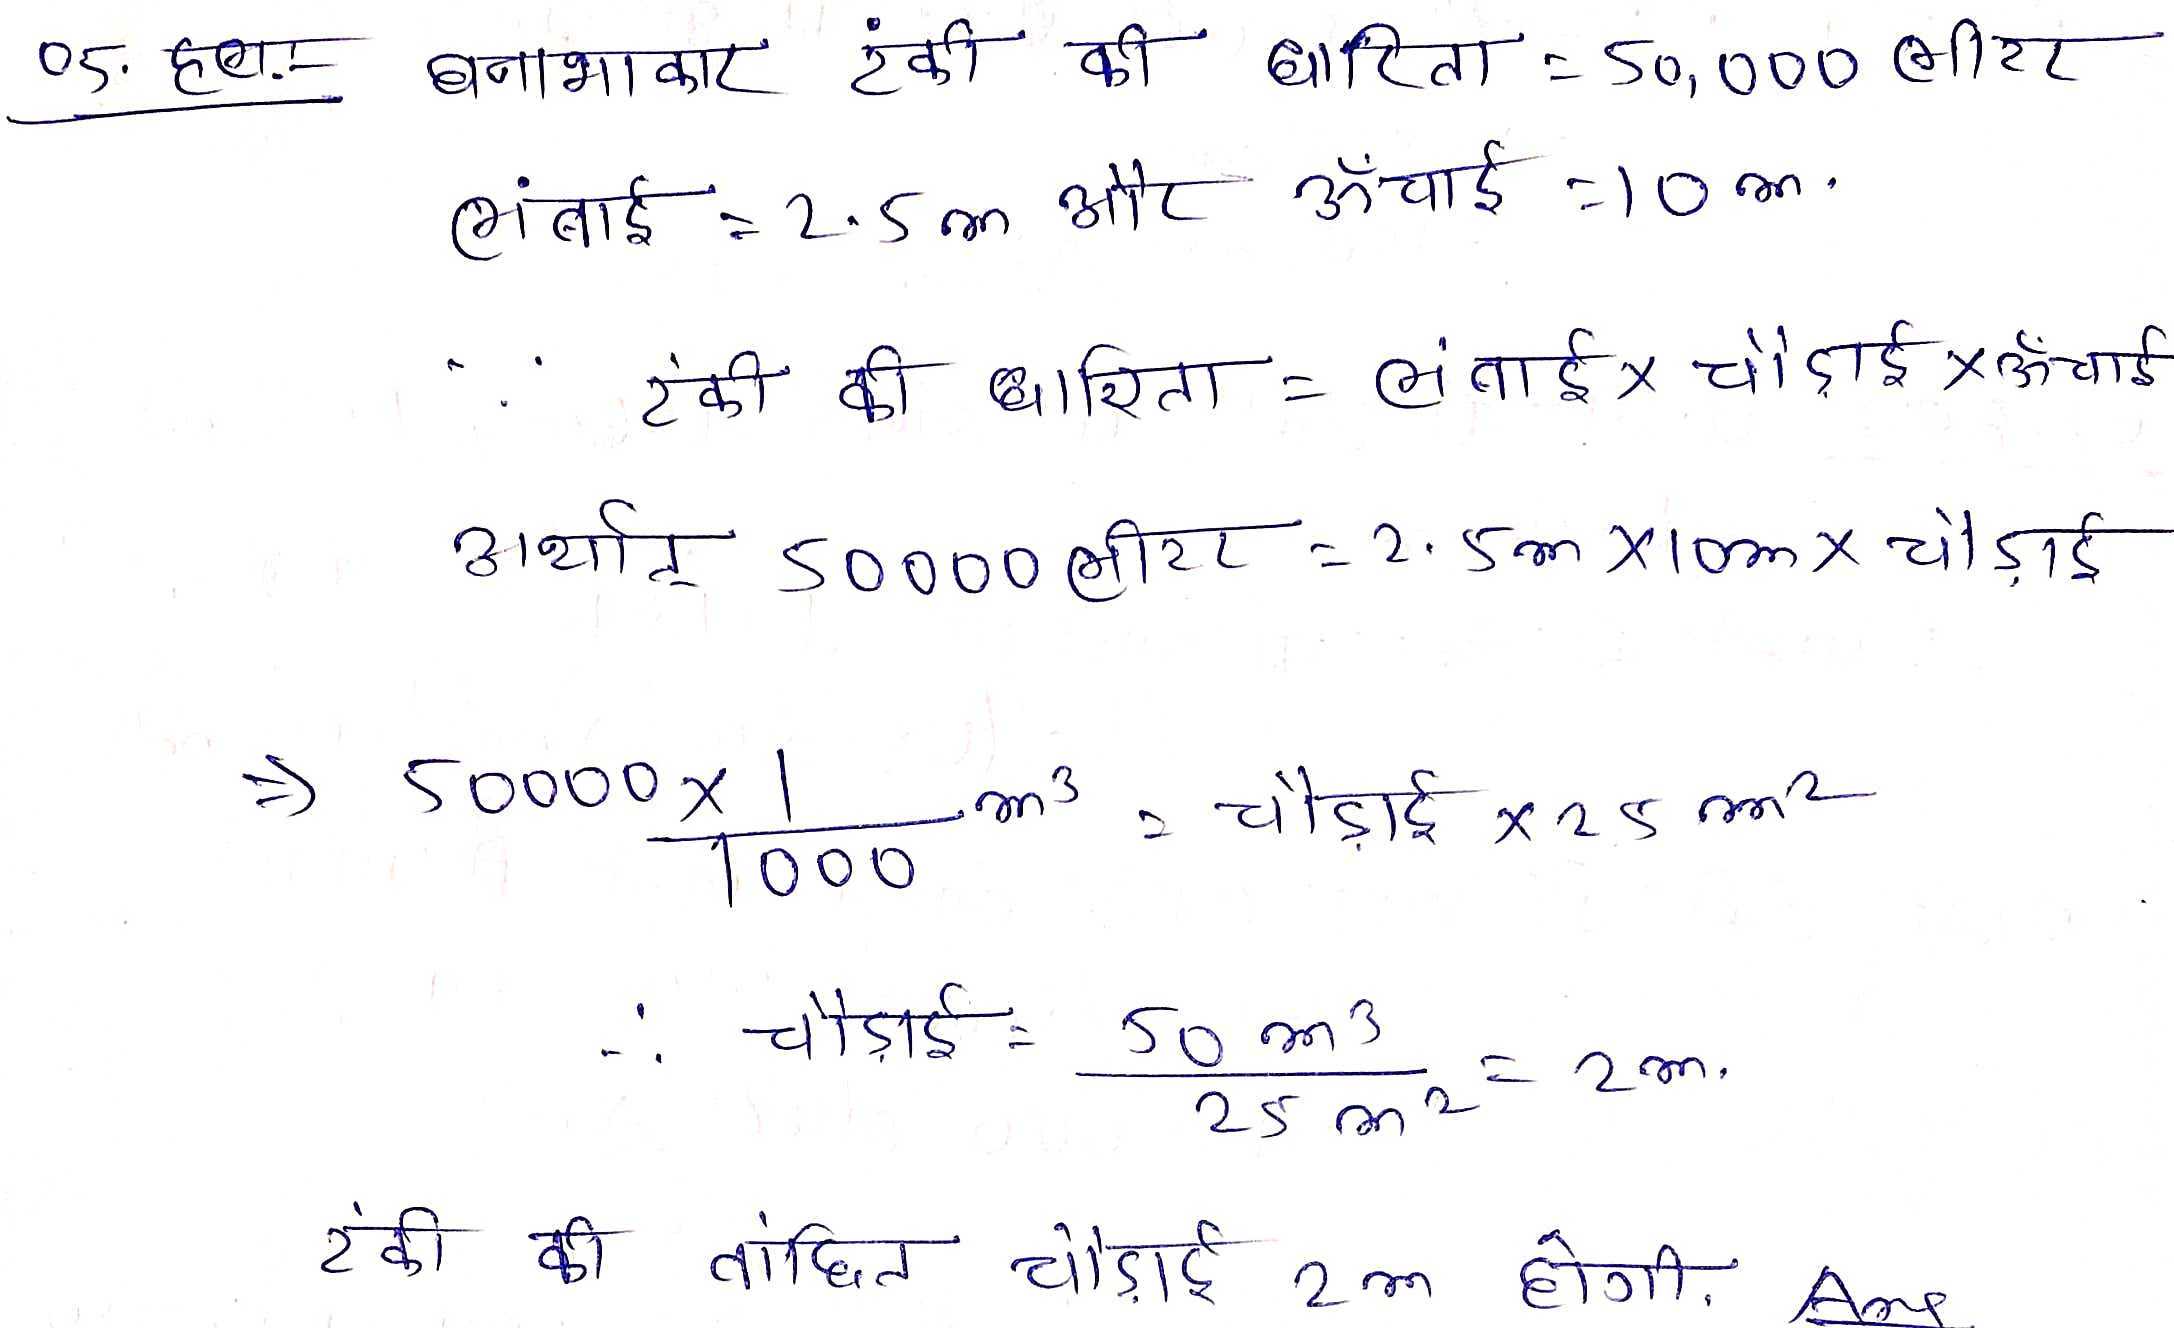 05. हल:- घनाभाकार टंकी की धारिता = 50,000 लीटर
लंबाई = 2.5 m और ऊँचाई = 10 m.
∵ टंकी की धारिता = लंबाई × चौड़ाई × ऊँचाई
अर्थात् 50000 लीटर = 2.5m × 10m × चौड़ाई
⇒ 50000 × 1/1000 m³ = चौड़ाई × 25 m²
∴ चौड़ाई = 50 m³/25 m² = 2m.
टंकी की वांछित चौड़ाई 2m होगी. Ans